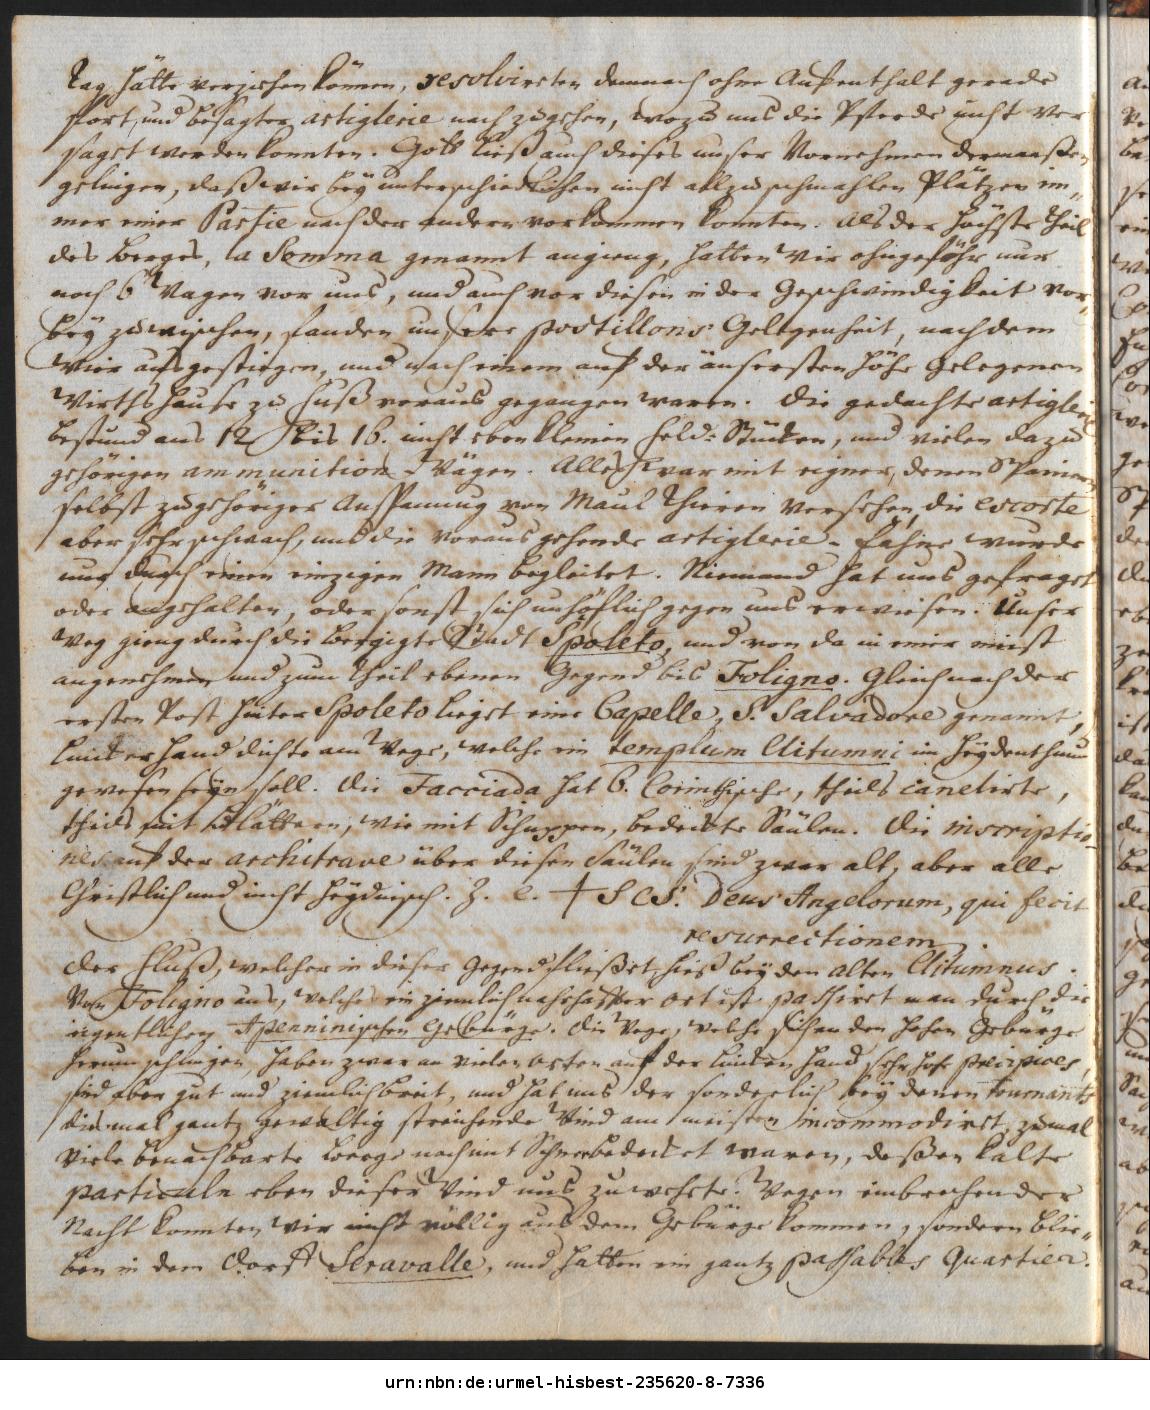 Tag hätte verziehen können, resolvirten demnach ohne Aufenthalt gerade
fort, und besagter artiglerie nach zu gehen, wozu uns die Pferde nicht ver
sagt werden konnten. Gott ließ auch dieses unser Vornehmen dermaaßen
gelingen, daß wir bey unterschiedlichen nicht allzu schmahlen Plätzen im„
mer einer Partie nach der andern vorkommen konnten. Als der höchste Theil
des Berges, la Somma genannt angieng, hatten wir ohngefähr nur
noch 6 Wagen vor uns, und auch vor diesen in der Geschwindigkeit vor„
bey zu wischen, fanden unsere postillons Gelegenheit, nachdem
wir ausgestiegen, und nach einem auf der äusersten Höhe gelegenen
Wirthshause zu Fuß voraus gegangen waren. Die gedachte artiglerie
bestund aus 12 bis 16. nicht eben kleinen Feld-Stücken, und vielen dazu
gehörigen ammunition Wägen. Alles war mit eigner, denen Spaniern
selbst zugehöriger Anspannung von Maul Thieren versehen, die escorte
aber sehr schwach, und die voraus gehende artiglerie-Fahne wurde
nur durch einen einzigen Mann begleitet. Niemand hat uns gefragt
oder angehalten, oder sonst sich unhöflich gegen uns erwiesen. Unser
Weg gieng durch die bergigte Stadt Spoleto, und von da in einer meist
angenehmen und zum Theil ebenen Gegend bis Foligno. Gleich nach der
ersten Post hinter Spoleto liegt eine Capelle, S. Salvadore genannt,
lincker Hand dichte am Wege, welche ein templum Clitumni im Heydenthum
gewesen seyn soll. Die Facciada hat 6. Corinthische, theils canelirte,
theils mit Blättern, wie mit Schuppen, bedeckte Säulen. Die inscriptio„
nes auf der architrave über diesen Säulen sind zwar alt, aber alle
Christlich und nicht heydnisch. Z. e. + SCS. Deus Angelorum, qui fecit
resurrectionem
Der Fluß, welcher in dieser Gegend fließet, hieß bey den alten Clitumnus.
Von Foligno aus, welches ein ziemlich nahrhafter Ort ist passiret man durch die
eigentlichen Apenninischen Gebürge. Die Wege, welche sich an den hohen Gebürge
herum schlingen, haben zwar an vielen Orten auf der lincken Hand sehr hohe precipices,
sind aber gut und ziemlich breit, und hat uns der sonderlich bey denen tournants
diesmal gantz gewaltig streichende Wind am meisten incommodiret, zumal
viele benachbarte Berge noch mit Schnee bedecket waren, deßen kalte
particuln eben dieser Wind uns zuwehete. Wegen einbrechender
Nacht konnten wir nicht völlig aus dem Gebürge kommen, sondern blie„
ben in dem Dorff Seravalle, und hatten ein gantz passables Quartier.
urn:nbn:de:urmel-hisbest-235620-8-7336